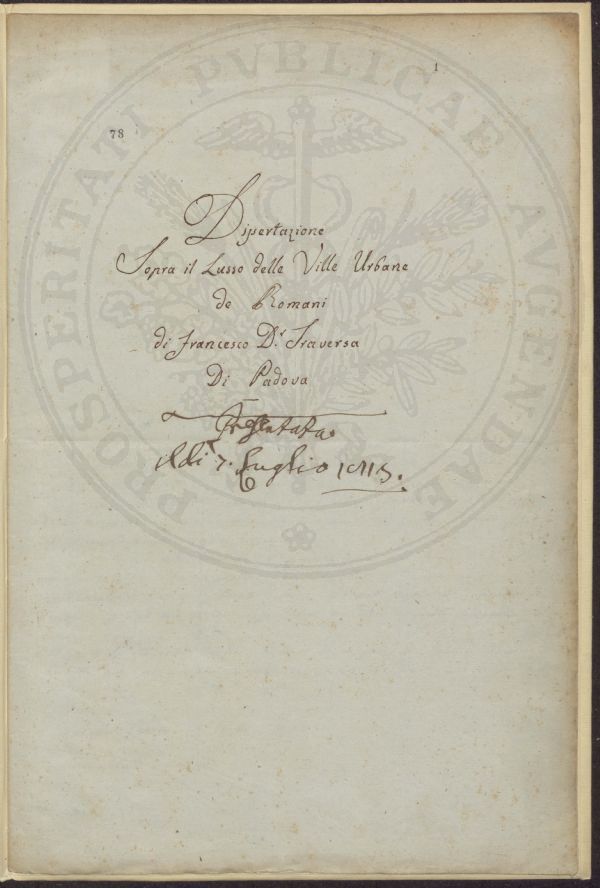 1
78
PROSPERITATI PVBLICAE AVGENDAE
Dissertazione
Sopra il Lusso delle Ville Urbane
de Romani
di Francesco D.r Traversa
Di Padova
Presentata
il di 7. Luglio